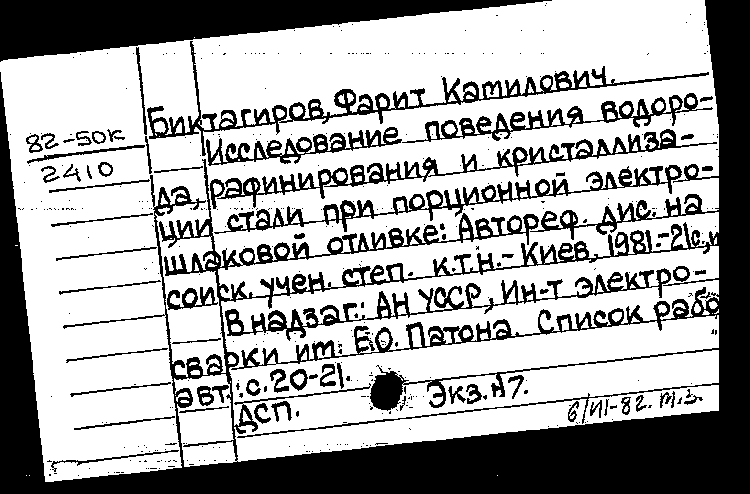 82-50к
2410
Биктагиров, Фарит Камилович.
Исследование поведения водоро-
да, рафинирования и кристаллиза-
ции стали при порционной электро-
шлаковой отливке: Автореф. дис. на
соиск. учен. степ. к.т.н.- Киев, 1981.-21с.,и
В надзаг.: АН УССР, Ин-т электро-
сварки им. Е.О. Патона. Список рабо
авт.: с.20-21.
ДСП.
Экз.№7.
6/VI-82. т.з.